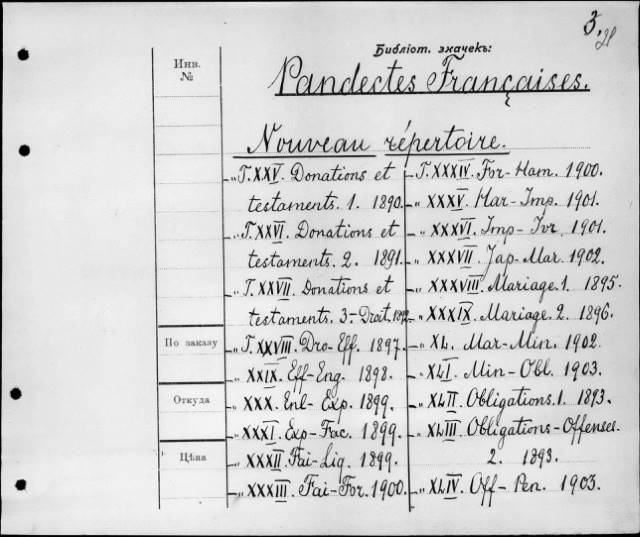 3.
Библіот. значекъ:
Инв.
№
Pandectes Françaises.
Nouveau répertoire.
„ T. XXV. Donations et
testaments. 1. 1890.
„ T. XXVI. Donations et
testaments. 2. 1891.
„ T. XXVII. Donations et
testaments. 3 - Droit. 1892
По заказу
„ T. XXVIII. Dro-Eff. 1897.
„ XXIX. Eff-Eng. 1898.
Откуда
„ XXX. Enl-Exp. 1899.
„ XXXI. Exp-Fac. 1899.
Цѣна
„ XXXII. Fai-Liq. 1899.
„ XXXIII. Fai-For. 1900.
„ T. XXXIV. For-Ham. 1900.
„ XXXV. Har-Imp. 1901.
„ XXXVI. Imp-Ivr. 1901.
„ XXXVII. Jap-Mar. 1902.
„ XXXVIII. Mariage. 1. 1895.
„ XXXIX. Mariage. 2. 1896.
„ XL. Mar-Min. 1902.
„ XLI. Min-Obl. 1903.
„ XLII. Obligations. 1. 1893.
„ XLIII. Obligations-Offenses.
2. 1893.
„ XLIV. Off-Pen. 1903.